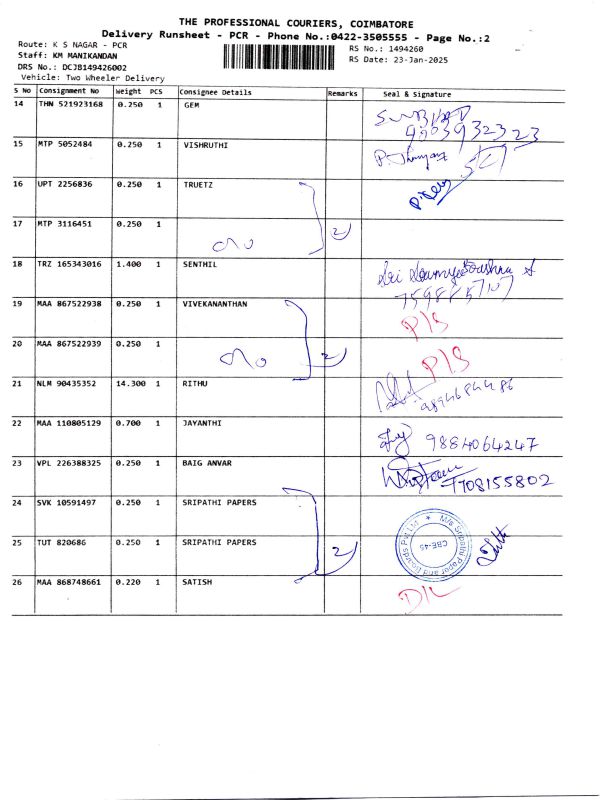 THE PROFESSIONAL COURIERS, COIMBATORE
Delivery Runsheet - PCR - Phone No.:0422-3505555 - Page No.:2
Route: K S NAGAR - PCR
RS No.: 1494260
Staff: KM MANIKANDAN
RS Date: 23-Jan-2025
DRS No.: DCJB149426002
Vehicle: Two Wheeler Delivery
S No Consignment No Weight PCS Consignee Details Remarks Seal & Signature
14 THN 521923168 0.250 1 GEM
9003932323
15 MTP 5052484 0.250 1 VISHRUTHI
16 UPT 2256836 0.250 1 TRUETZ
17 MTP 3116451 0.250 1 2
18 TRZ 165343016 1.400 1 SENTHIL
7598857107
19 MAA 867522938 0.250 1 VIVEKANANTHAN P/S
20 MAA 867522939 0.250 1 2 P/S
21 NLM 90435352 14.300 1 RITHU 9894684486
22 MAA 110805129 0.700 1 JAYANTHI 9884064247
23 VPL 226388325 0.250 1 BAIG ANVAR 7708155802
24 SVK 10591497 0.250 1 SRIPATHI PAPERS
25 TUT 820686 0.250 1 SRIPATHI PAPERS 2
M/s Sripathi Paper and Boards Pvt Ltd ★
CBE-45
26 MAA 868748661 0.220 1 SATISH D/L